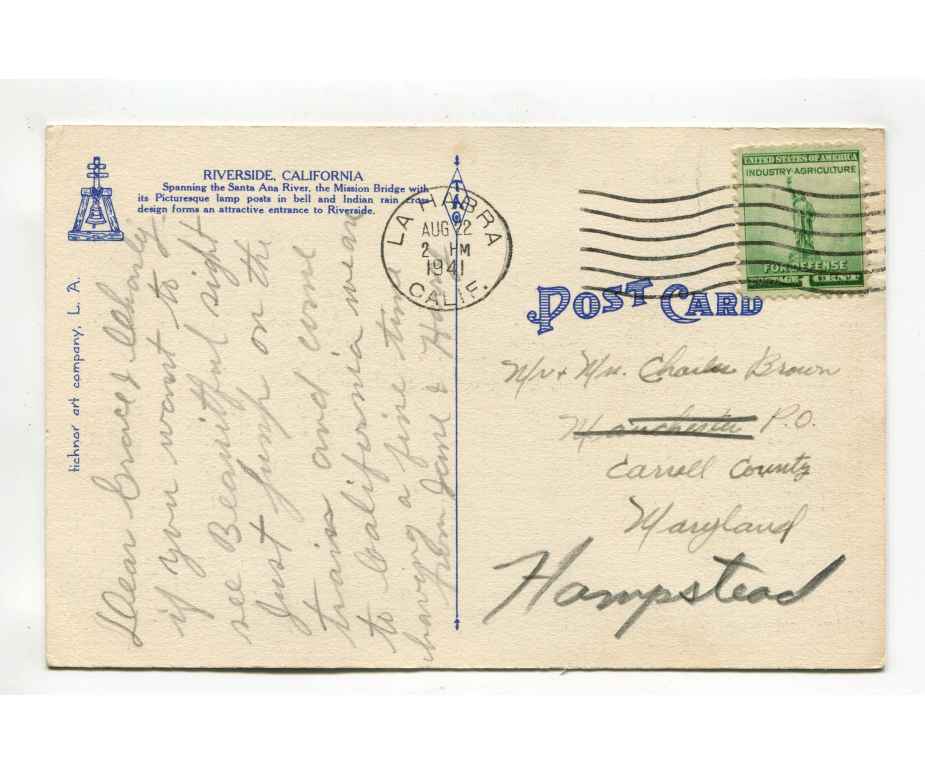 RIVERSIDE, CALIFORNIA
Spanning the Santa Ana River, the Mission Bridge with
its Picturesque lamp posts in bell and Indian rain cross
design forms an attractive entrance to Riverside.
tichnor art company, L. A.
Dear Grace & Charly
if you want to go
see Beautiful sight
Just jump on the
train and come
to California we are
having a fine time
From Jane &
TAC
LA HABRA
AUG 22
2 PM
1941
CALIF.
UNITED STATES OF AMERICA
INDUSTRY·AGRICULTURE
FOR DEFENSE
POSTAGE 1 CENT
POST CARD
Mr & Mrs. Charles Brown
Manchester P.O.
Carroll County
Maryland
Hampstead